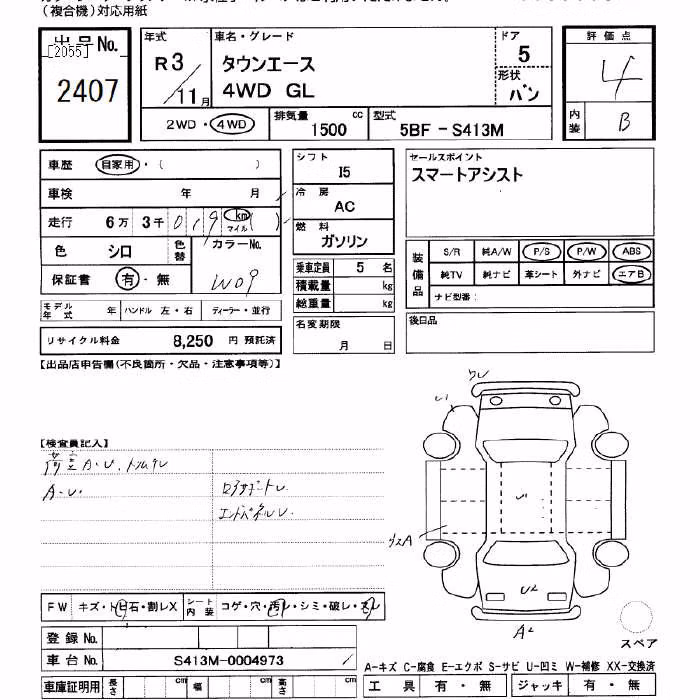 （複合機）対応用紙
出品No. [2055]
2407
年式 R3/11月
車名・グレード
タウンエース
4WD GL
ドア 5
形状 バン
評価点 4
内装 B
2WD・4WD
排気量 1500 cc
型式 5BF - S413M
車歴 自家用・（ ）
車検 年 月
走行 6万 3千 019 km マイル ( )
色 シロ
色替
カラーNo. W09
保証書 有・無
シフト I5
冷房 AC
燃料 ガソリン
乗車定員 5 名
積載量 kg
総重量 kg
名変期限 月 日
セールスポイント
スマートアシスト
装備品
S/R 純A/W P/S P/W ABS
純TV 純ナビ 革シート 外ナビ エアB
ナビ型番：
後日品
モデル年式 年 ハンドル 左・右 ディーラー・並行
リサイクル料金 8,250 円 預託済
【出品店申告欄（不良箇所・欠品・注意事項等）】
【検査員記入】
A・U.
A・U.
エンドパネルU.
U1
U1
A
U2
A2
FW キズ・トビ石・割レX
シート内装 コゲ・穴・汚レ・シミ・破レ・スレ
登録No.
車台No. S413M-0004973
車庫証明用 長さ cm 幅 cm 高さ cm
スペア
A-キズ C-腐食 E-エクボ S-サビ U-凹ミ W-補修 XX-交換済
工具 有・無 ジャッキ 有・無